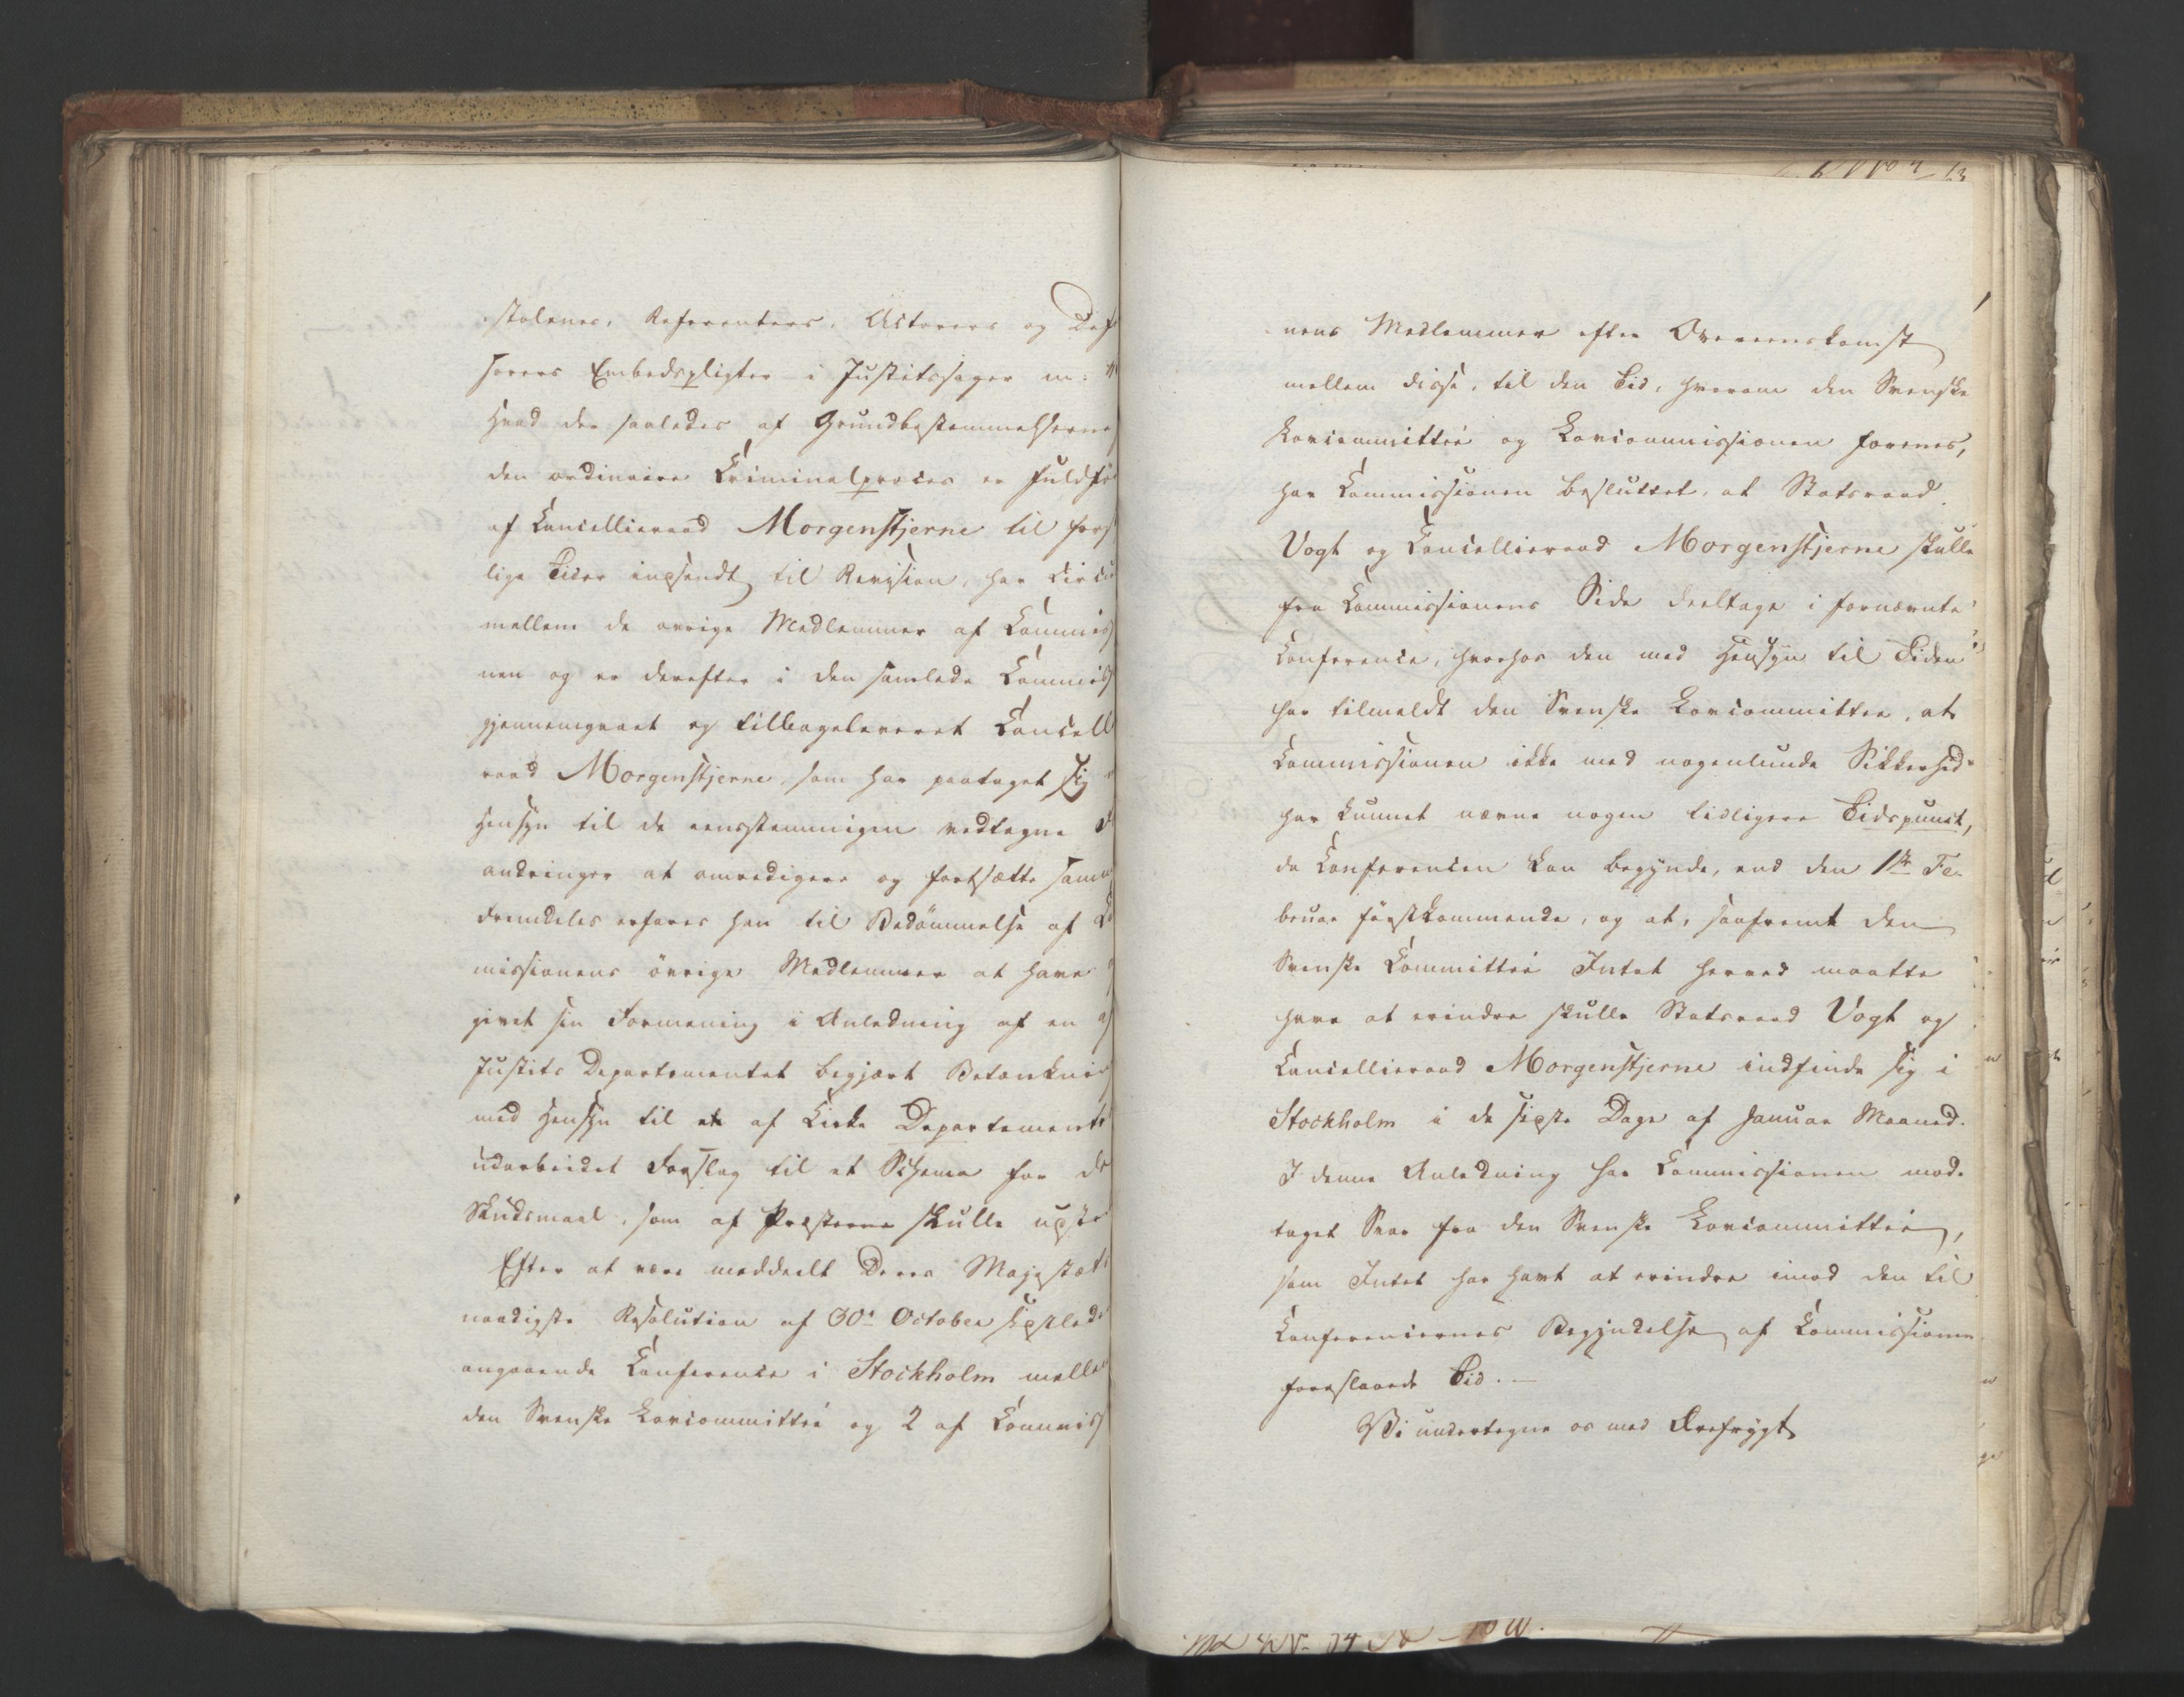 stolenes, Referenters, Actorers og Def
sorers Embedspligter i Justitssager m:
Hvad der saaledes af Grundbestemmelserne
den ordinaire Criminalproces er fuldfö
af Cancellieraad Morgenstjerne til forsk
lige Tider indsendt til Revision, har circu
mellem de øvrige Medlemmer af Commis
nen og er derefter i den samlede Commis
gjennemgaaet og tilbageleveret Cancell
raad Morgenstjerne, som har paataget sig
Hensyn til de eensstemmigen vedtagne
andringer at omredigere og fortsætte samm
Fremdeles erfares han til Bedömmelse af Co
missionens övrige Medlemmer at have
givet sin Formening i Anledning af en af
Justits Departementet begjært Betænkni
med Hensyn til et af Kirke Departemente
udarbeidet Forslag til et Schema for de
Skudsmaal, som af Præsterne skulle udste
Efter at være meddeelt Deres Majestæts
naadigste Resolution af 30te October sidstled
angaaende Conferencer i Stockholm melle
den Svenske Lovcommittée og 2 af Commis
nens Medlemmer efter Overeenskomst
mellem disse, til den Tid, hvorom den Svenske
Lovcommittée og Lovcommissionen forenes,
har Commissionen besluttet, at Statsraad
Vogt og Cancellieraad Morgenstjerne skulle
fra Commissionens Side deeltage i fornævnte
Conference, hvorhos den med Hensyn til Tiden
har tilmeldt den Svenske Lovcommittee, at
Commissionen ikke med nogenlunde Sikkerhed
har kunnet nævne nogen tidligere Tidspunct,
da Conferencen kan begynde, end den 1ste Fe-
bruar förstkommende, og at, saafremt den
Svenske Committée Intet herved maatte
have at erindre skulle Statsraad Vogt og
Cancellieraad Morgenstjerne indfinde sig i
Stockholm i de sidste Dage af Januar Maaned.
I denne Anledning har Commissionen mod-
taget Svar fra den Svenske Lovcommittée,
som Intet har havt at erindre imod den til
Conferencernes Begyndelse af Commissionen
foreslaaede Tid. —
Vi undertegne os med Ærefrygt